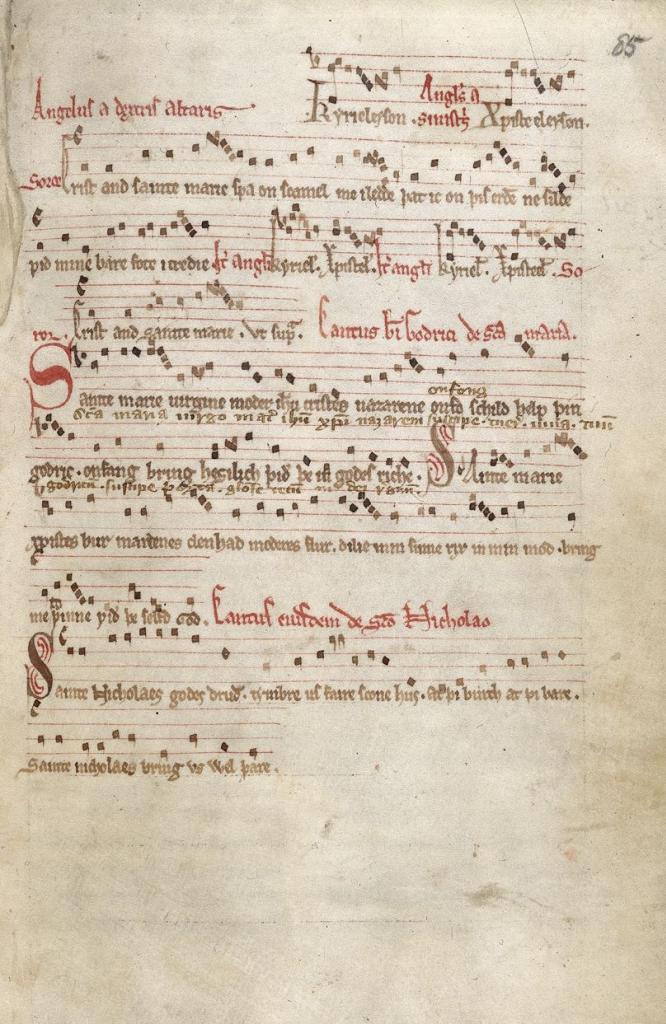 85
Angelus a dextris altaris
Kyrieleyson. Angls a sinistris Xpiste eleyson.
Soror Crist and sainte marie spa on scamel me iledde þat ic on þis erðe ne silde
þid mine bare fote itredie kyriel. Xpistel. kyriel. Xpistel. So
ror. Crist and sainte marie. vt supra. Cantus bi Godrici de sca maria.
onfong
Sainte marie uirgine moder ihu cristes nazarene onfo schild help þin
sca maria uirgo mater ihu xpi nazareni suscipe. tuum
godric. onfang bring hegilich þid þe in godes riche. Sainte marie
godricum. suscipe
xpistes bur maidenes clenhad moderes flur. dilie min sinne rix in min mod. bring
me þinne þid þe selfd god. Cantus eiusdem de sco Nicholao
Sainte Nicholaes godes druð. tymbre us faire scone hus. At þi burth at þi bare.
Sainte nicholaes bring vs wel þare.